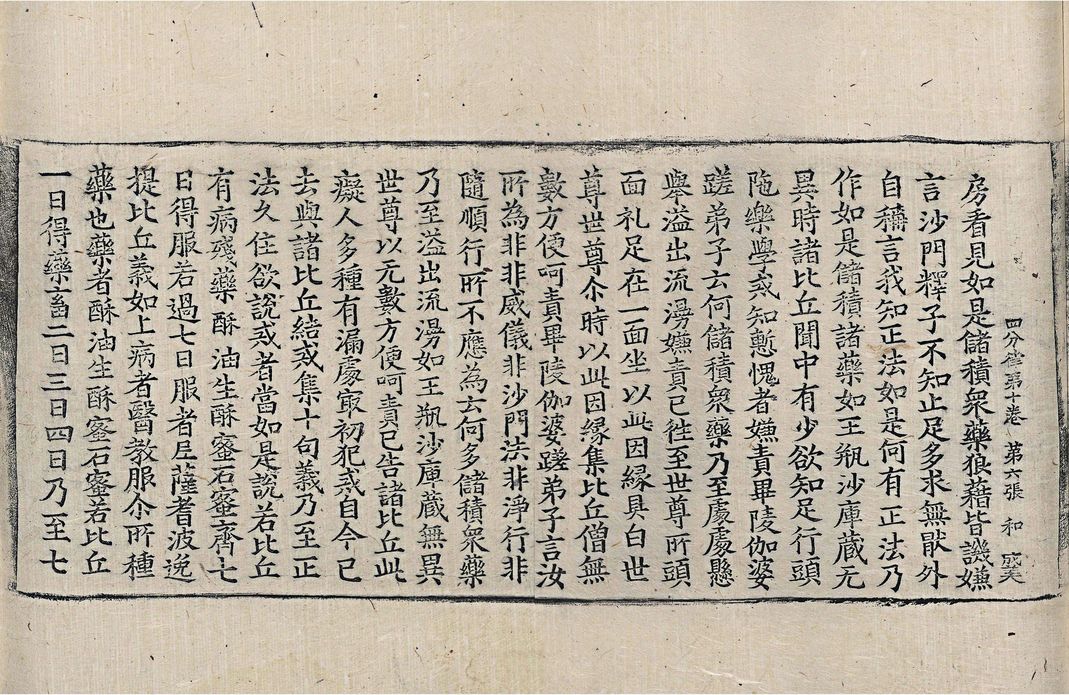 房看見如是儲積衆藥狼藉皆譏嫌
四分律第十卷 第六張 和
言沙門釋子不知止足多求無猒外
自稱言我知正法如是何有正法乃
作如是儲積諸藥如王瓶沙庫藏无
異時諸比丘聞中有少欲知足行頭
陁樂學戒知慙愧者嫌責畢陵伽婆
蹉弟子云何儲積衆藥乃至處處懸
舉溢出流澷嫌責已徃至世尊所頭
面礼足在一面坐以此因緣具白世
尊世尊尒時以此因緣集比丘僧無
數方便呵責畢陵伽婆蹉弟子言汝
所為非非威儀非沙門法非淨行非
隨順行所不應為云何多儲積衆藥
乃至溢出流澷如王瓶沙庫藏無異
世尊以无數方便呵責已告諸比丘此
癡人多種有漏處㝡初犯戒自今已
去與諸比丘結戒集十句義乃至正
法久住欲說戒者當如是說若比丘
有病殘藥酥油生酥蜜石蜜齊七
日得服若過七日服者尼薩耆波逸
提比丘義如上病者醫教服尒所種
藥也藥者酥油生酥蜜石蜜若比丘
一日得藥畜二日三日四日乃至七